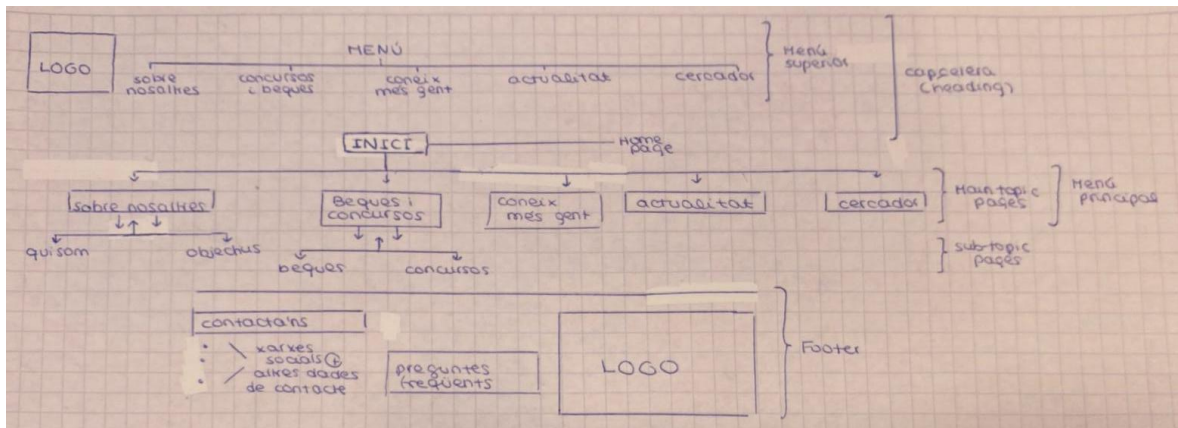 LOGO
MENÚ
sobre
nosaltres
concursos
i beques
coneix
més gent
actualitat
cercador
Menú
superior
capçelera
(heading)
INICI
Home
page
sobre nosaltres
Beques i
concursos
coneix
més gent
actualitat
cercador
Main topic
pages
Menú
principal
qui som
objectius
beques
concursos
sub-topic
pages
contacta'ns
xarxes
socials +
altres dades
de contacte
preguntes
freqüents
LOGO
Footer